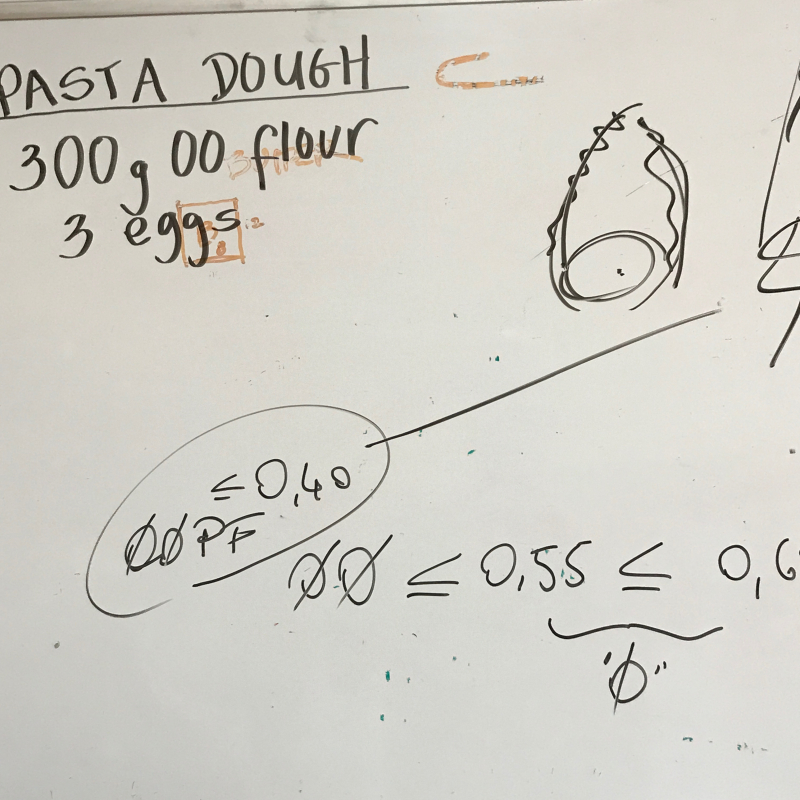 PASTA DOUGH
300g 00 flour
3 eggs
≤0,40
ØØPF
ØØ ≤ 0,55 ≤ 0,6
"Ø"